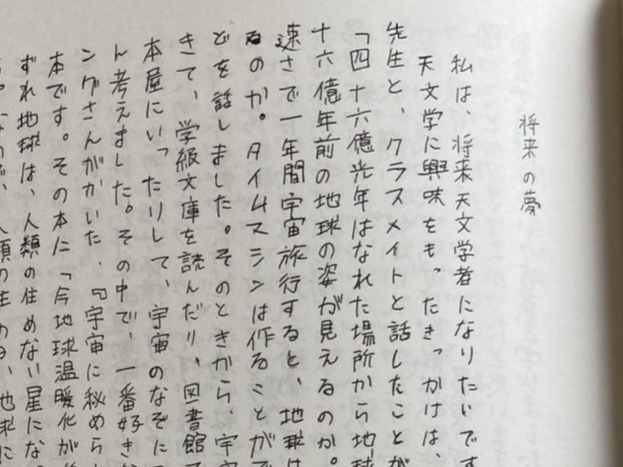 将来の夢
私は、将来天文学者になりたいです
天文学に興味をもったきっかけは、
先生と、クラスメイトと話したことが
「四十六億光年はなれた場所から地球
十六億年前の地球の姿が見えるのか。
速さで一年間宇宙旅行すると、地球は
るのか。タイムマシンは作ることがで
どを話しました。そのときから、宇宙
きて、学級文庫を読んだり、図書館で
本屋にいったりして、宇宙のなぞに
ん考えました。その中で、一番好きな
ングさんがかいた、『宇宙に秘められ
本です。その本に「今地球温暖化が
ずれ地球は、人類の住めない星にな